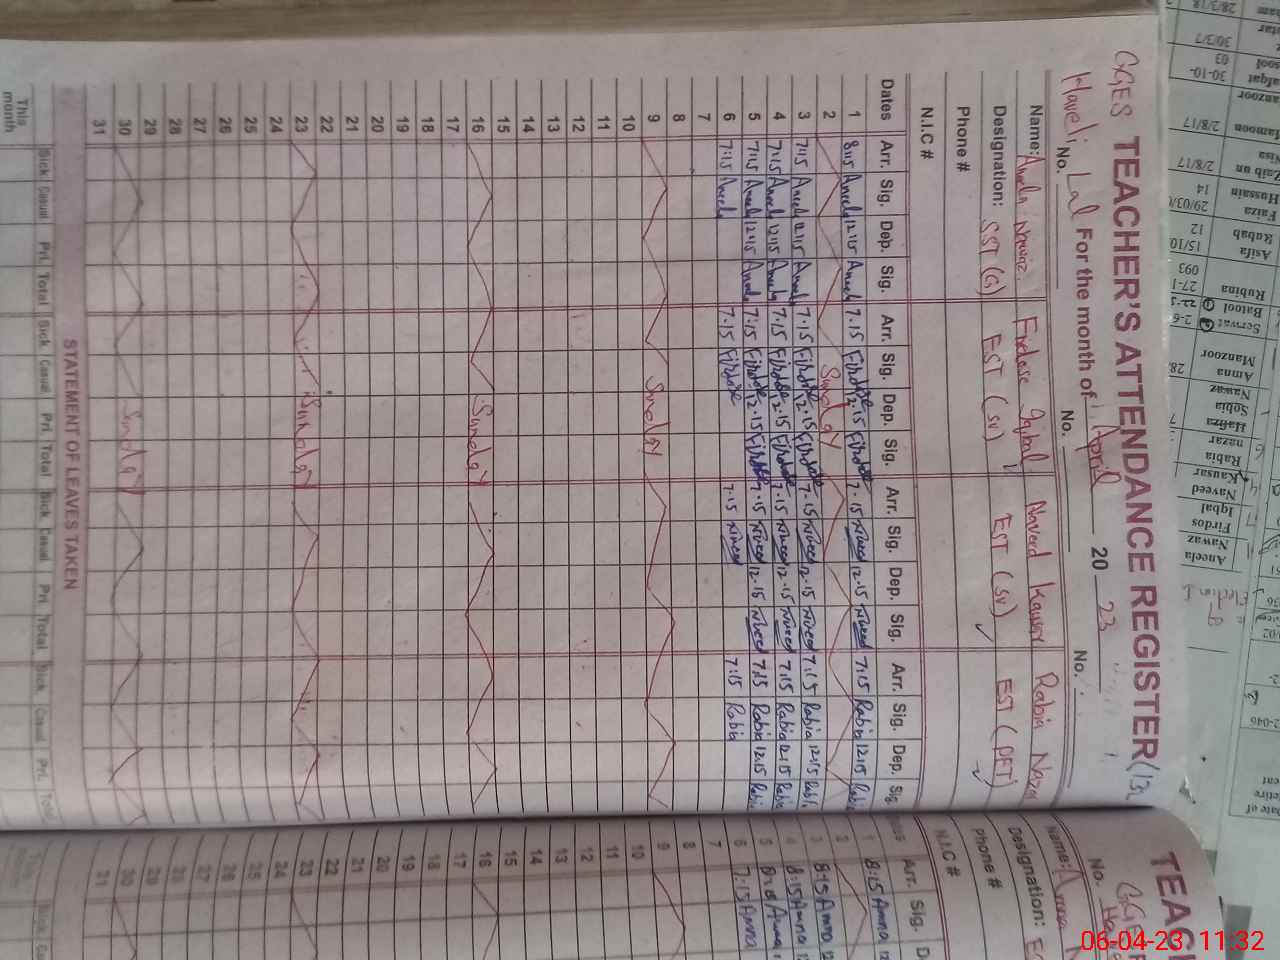 GGES TEACHER'S ATTENDANCE REGISTER (13)
Haveli Lal For the month of April 20 23
No. No. No.
Name: Aneela Nawaz Firdose Iqbal Naveed Kausar Rabia Nazar
Designation: SST (G) EST (SV) EST (SV) EST (PET)
Phone #
N.I.C #
Dates Arr. Sig. Dep. Sig. Arr. Sig. Dep. Sig. Arr. Sig. Dep. Sig. Arr. Sig. Dep. Sig.
1 8:15 Aneela 12:15 Aneela 7.15 Firdose 12.15 Firdose 7.15 Naveed 12.15 Naveed 7.15 Rabia 12:15 Rabia
2 Sunday
3 7:15 Aneela 12:15 Aneela 7.15 Firdose 12.15 Firdose 7.15 Naveed 12.15 Naveed 7.15 Rabia 12:15 Rabia
4 7:15 Aneela 12:15 Aneela 7.15 Firdose 12.15 Firdose 7.15 Naveed 12.15 Naveed 7.15 Rabia 12:15 Rabia
5 7:15 Aneela 12:15 Aneela 7.15 Firdose 12.15 Firdose 7.15 Naveed 12.15 Naveed 7.15 Rabia 12:15 Rabia
6 7:15 Aneela 7.15 Firdose 7.15 Naveed 7.15 Rabia
7
8
9 Sunday
10
11
12
13
14
15
16 Sunday
17
18
19
20
21
22
23 Sunday
24
25
26
27
28
29
30 Sunday
31
STATEMENT OF LEAVES TAKEN
Sick Casual Pri. Total Sick Casual Pri. Total Sick Casual Pri. Total Sick Casual Pri. Total
This month
TEACH
No.
Name: Amna
Designation:
Phone #
N.I.C #
Arr. Sig.
1 8:15 Amna
2
3 8:15 Amna
4 8:15 Amna
5 Amna
6 7:15 Amna
7
8
9
10
11
12
13
14
15
16
17
18
19
20
21
22
23
24
25
26
27
28
29
30
31
28/3/18
30/3/7
03
30-10-
Manzoor
Mamoon 2/8/17
Nisa
Zaib un 2/8/17
Hussain 14
Faiza 29/03/
Rubab 12
Asifa 15/10
093
Rubina 27-1
Batool
Serwat 2-6
Manzoor
Amna 28
Nawaz
Sobia
Hafiza
nazar
Rabia
Kausar
Naveed
Iqbal
Firdos
Nawaz
Aneela
2-046
etire
Date of
06-04-23 11:32